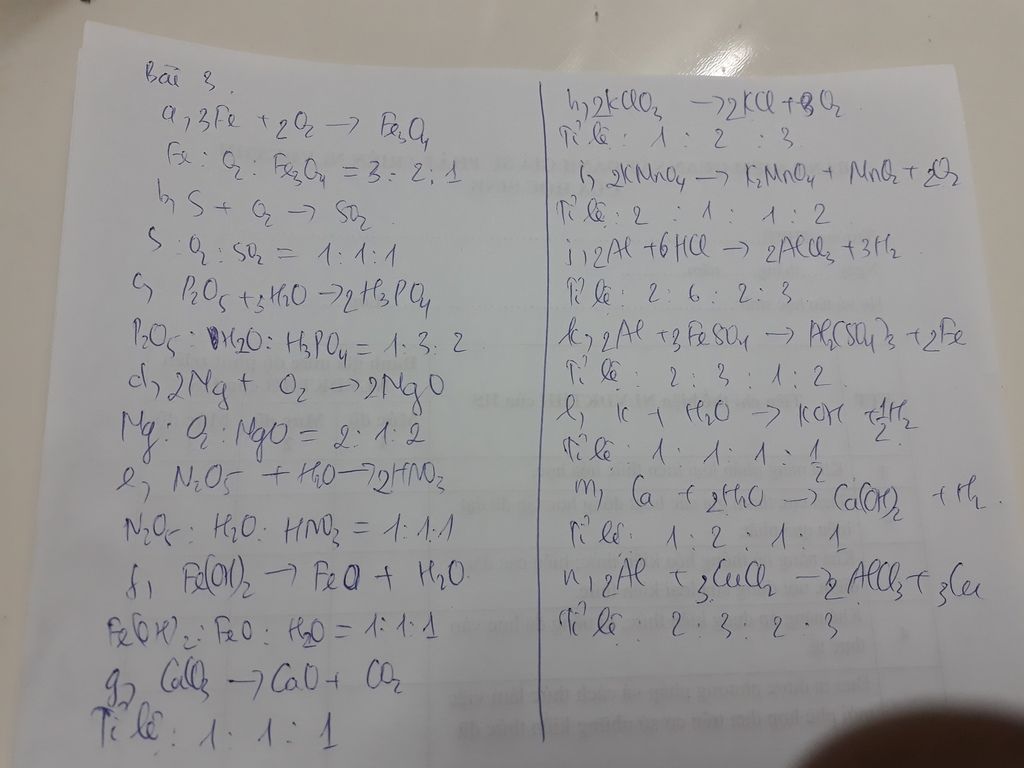 Bài 3.
a, 3Fe + 2O2 → Fe3O4
Fe : O2 : Fe3O4 = 3 : 2 : 1
b, S + O2 → SO2
S : O2 : SO2 = 1 : 1 : 1
c, P2O5 + 3H2O → 2H3PO4
P2O5 : H2O : H3PO4 = 1 : 3 : 2
d, 2Mg + O2 → 2MgO
Mg : O2 : MgO = 2 : 1 : 2
e, N2O5 + H2O → 2HNO3
N2O5 : H2O : HNO3 = 1 : 1 : 1
f, Fe(OH)2 → FeO + H2O
Fe(OH)2 : FeO : H2O = 1 : 1 : 1
g, CaCO3 → CaO + CO2
Tỉ lệ : 1 : 1 : 1
h, 2KClO3 → 2KCl + 3O2
Tỉ lệ : 1 : 2 : 3
i, 2KMnO4 → K2MnO4 + MnO2 + 2O2
Tỉ lệ : 2 : 1 : 1 : 2
j, 2Al + 6HCl → 2AlCl3 + 3H2
Tỉ lệ : 2 : 6 : 2 : 3
k, 2Al + 3FeSO4 → Al2(SO4)3 + 2Fe
Tỉ lệ : 2 : 3 : 1 : 2
l, K + H2O → KOH + 1/2H2
Tỉ lệ : 1 : 1 : 1 : 1/2
m, Ca + 2H2O → Ca(OH)2 + H2
Tỉ lệ : 1 : 2 : 1 : 1
n, 2Al + 3CuCl2 → 2AlCl3 + 3Cu
Tỉ lệ : 2 : 3 : 2 : 3